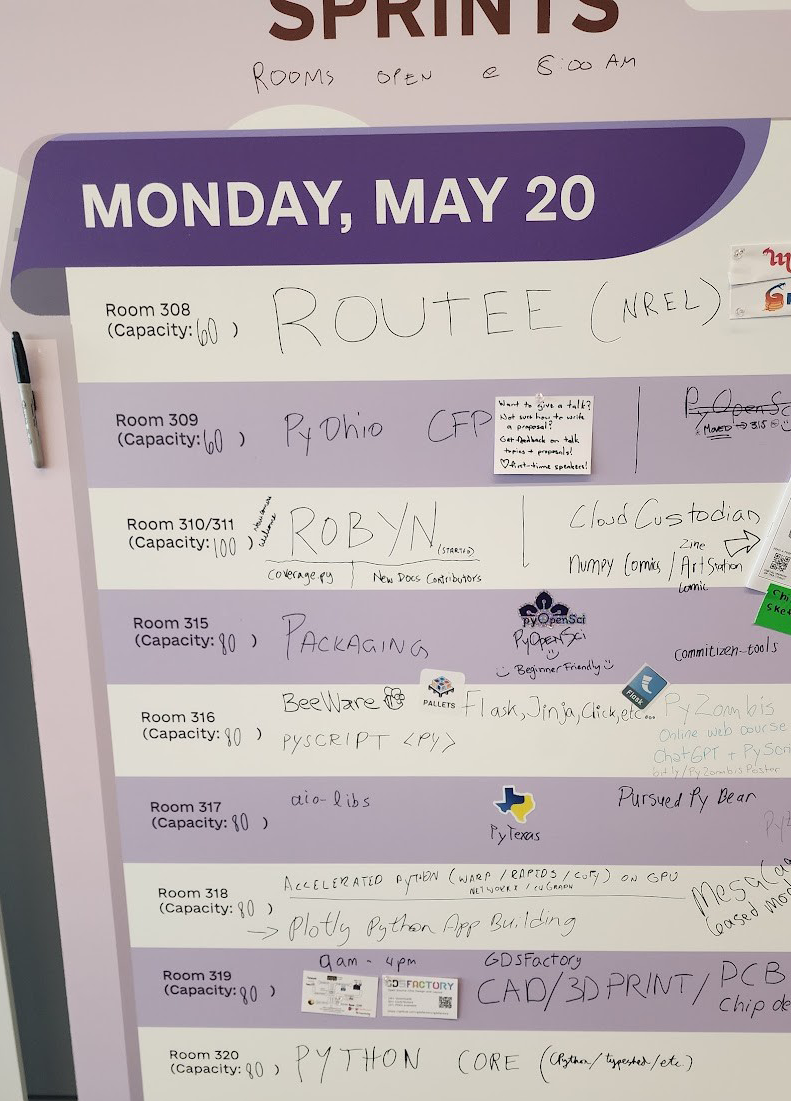 SPRINTS
ROOMS OPEN @ 8:00 AM
MONDAY, MAY 20
Room 308
(Capacity: 60)
ROUTEE (NREL)
Room 309
(Capacity: 60)
PyOhio CFP
Want to give a talk?
Not sure how to write
a proposal?
Get feedback on talk
topics + proposals!
♡ first-time speakers!
PyOpenSc
MOVED → 315 ☺
Room 310/311
(Capacity: 100)
Newcomers
Welcome
ROBYN (STARTED)
coverage.py | New Docs Contributors
Cloud Custodian
Numpy Comics / Zine
ArtStation
Comic
Room 315
(Capacity: 80)
PACKAGING
pyOpenSci
PyOpenSci
☺ Beginner Friendly ☺
commitizen-tools
Room 316
(Capacity: 80)
BeeWare
PYSCRIPT <PY>
PALLETS
Flask, Jinja, Click, etc...
Flask
PyZombis
Online web course
ChatGPT + PyScri
bit.ly/PyZombisPoster
Room 317
(Capacity: 80)
aio-libs
PyTexas
Pursued Py Bear
Room 318
(Capacity: 80)
ACCELERATED PYTHON (WARP / RAPIDS / CUPY) ON GPU
NETWORKX / CUGRAPH
→ Plotly Python App Building
Mesa
based mod
Room 319
(Capacity: 80)
9am - 4pm
GDSFACTORY
GDSFactory
CAD/3D PRINT/ PCB
chip de
Room 320
(Capacity: 80)
PYTHON CORE (CPython/typeshed/etc)